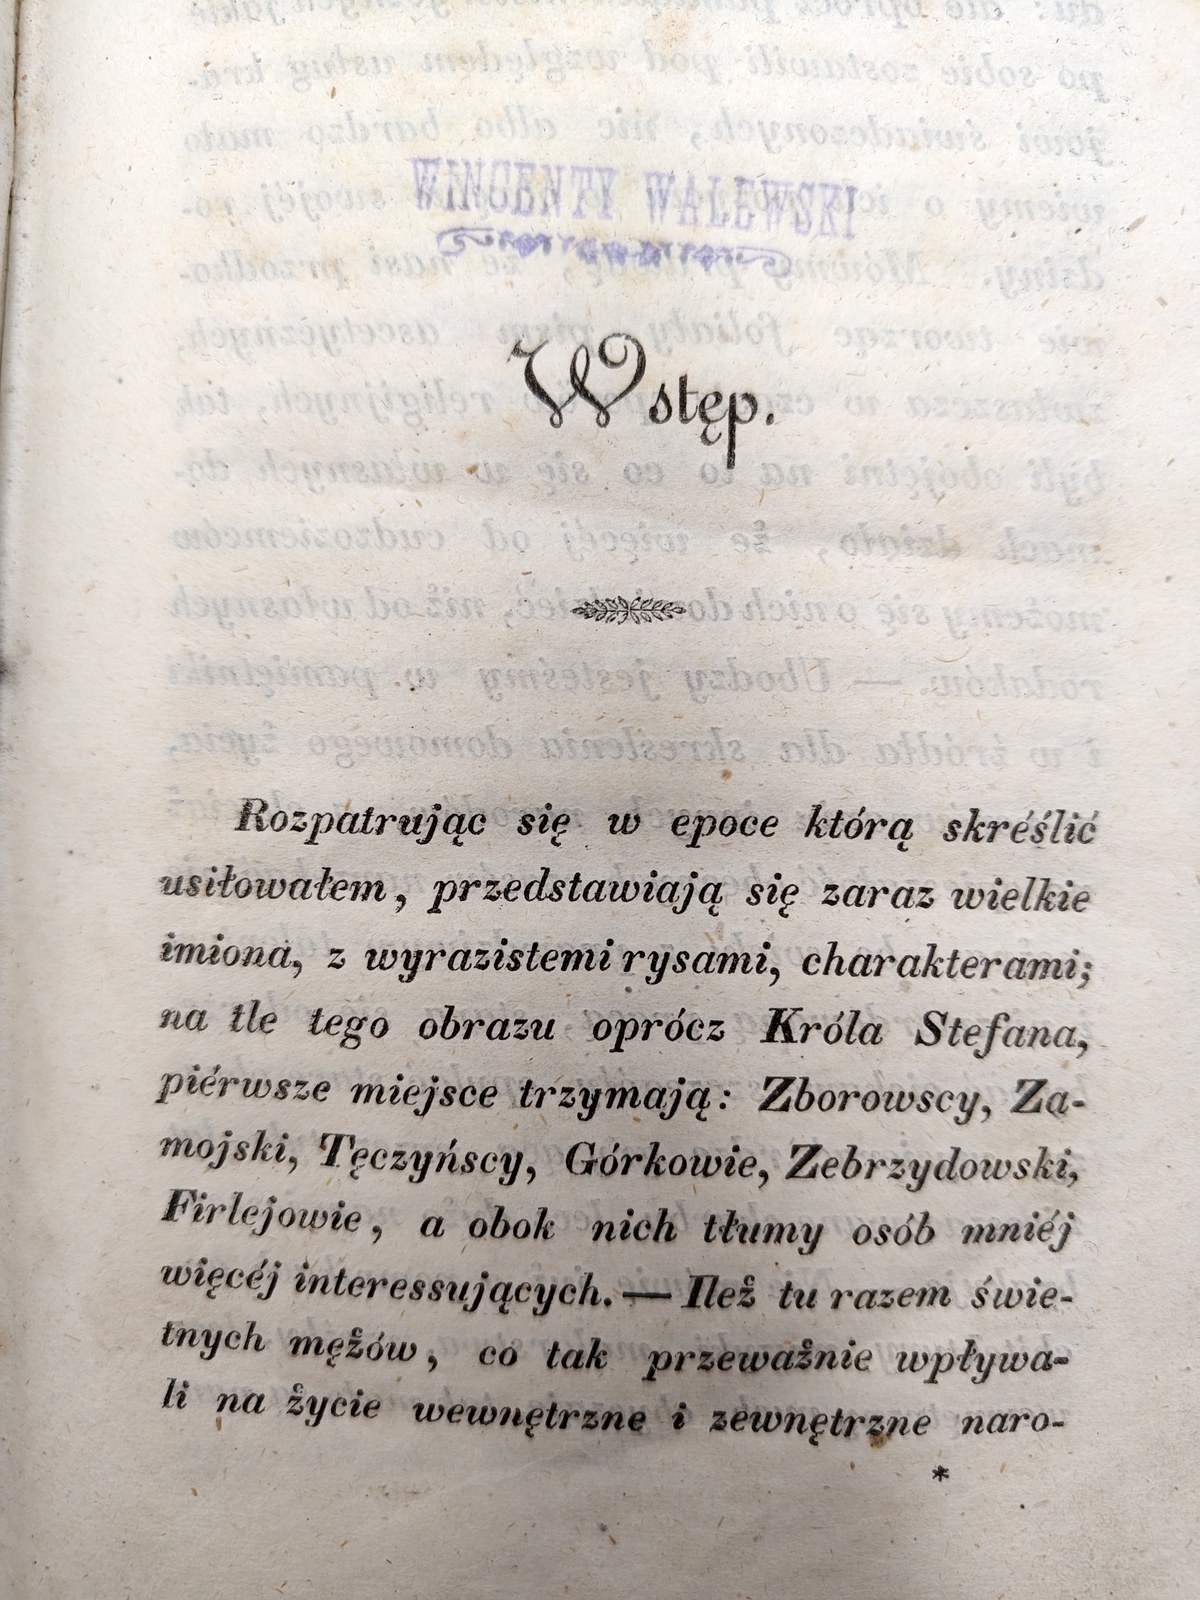 WINCENTY WALEWSKI
Wstęp.
Rozpatrując się w epoce którą skréślić
usiłowałem, przedstawiają się zaraz wielkie
imiona, z wyrazistemi rysami, charakterami;
na tle tego obrazu oprócz Króla Stefana,
piérwsze miejsce trzymają: Zborowscy, Za-
mojski, Tęczyńscy, Górkowie, Zebrzydowski,
Firlejowie, a obok nich tłumy osób mniéj
więcéj interessujących. — Ileż tu razem świe-
tnych mężów, co tak przeważnie wpływa-
li na życie wewnętrzne i zewnętrzne naro-
*